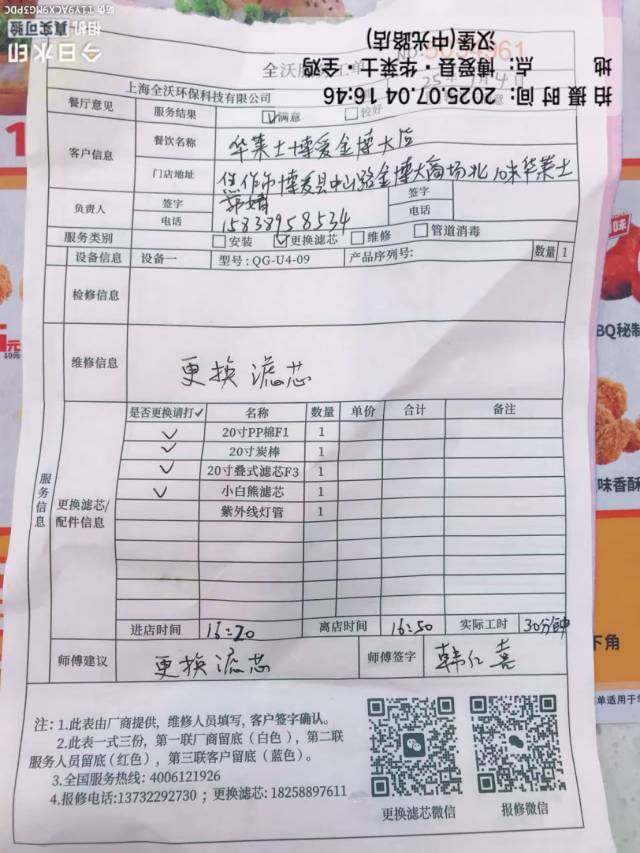 今日水印
相机
真实可验
防伪 T1Y9ACX9MGSPDC
拍摄时间：2025.07.04 16:46
地 点：博爱县·华莱士·全鸡
汉堡(中光路店)
全沃服
工单
No.
上海全沃环保科技有限公司
餐厅意见 服务结果 ✓满意 较好
客户信息 餐饮名称 华莱士博爱金博大店
门店地址 焦作市博爱县中山路金博大商场北10米华莱士
负责人 签字 签字
电话 15838958534 电话
服务类别 安装 ✓更换滤芯 维修 管道消毒
设备信息 设备一 型号：QG-U4-09 产品序列号： 数量 1
检修信息
维修信息 更换滤芯
服务信息
更换滤芯/配件信息
是否更换请打✓ 名称 数量 单价 合计 备注
✓ 20寸PP棉F1 1
✓ 20寸炭棒 1
✓ 20寸叠式滤芯F3 1
✓ 小白熊滤芯 1
紫外线灯管 1
进店时间 16:20 离店时间 16:50 实际工时 30分钟
师傅建议 更换滤芯 师傅签字 韩仁喜
注：1.此表由厂商提供，维修人员填写，客户签字确认。
2.此表一式三份，第一联厂商留底（白色），第二联
服务人员留底（红色），第三联客户留底（蓝色）。
3.全国服务热线：4006121926
4.报修电话:13732292730；更换滤芯：18258897611
更换滤芯微信 报修微信
BQ秘制
味香酥
下角
单适用于华